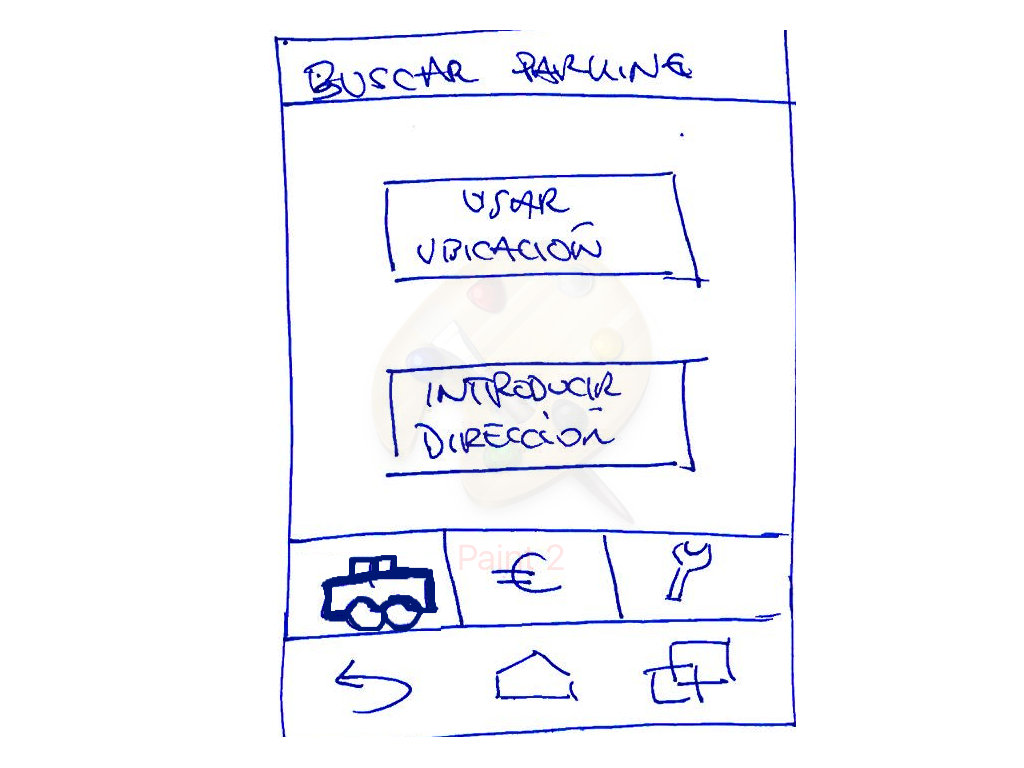 BUSCAR PARKING
USAR
UBICACIÓN
INTRODUCIR
DIRECCIÓN
Paint 2
€